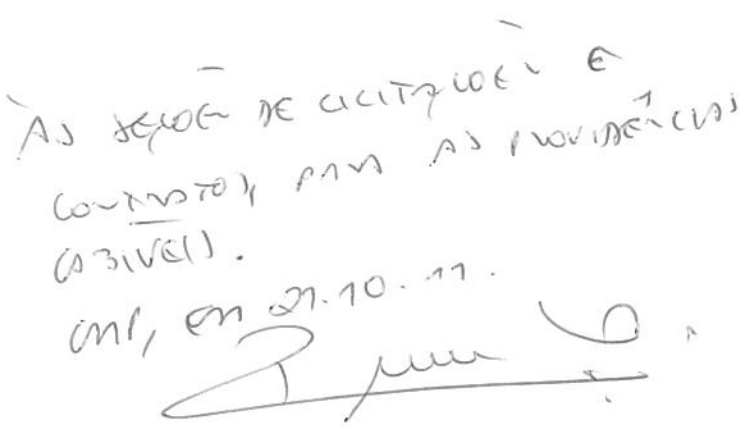 Às seções de licitações e
contratos, para as providências
cabíveis.
em 21.10.11.